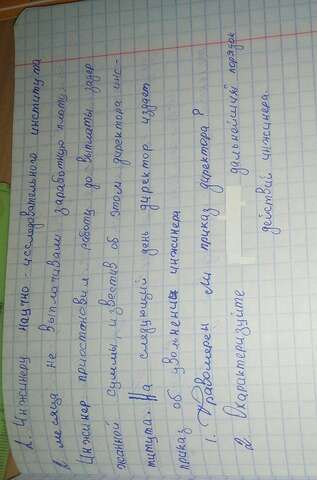 2. Инжинеру научно-исследовательского института
2 месяца не выплачивали заработную плату.
Инжинер приостановил работу до выплаты задер
жанной суммы, известив об этом директора инс-
титута. На следующий день директор издает
приказ об увольнении инжинера
1. Правомерен ли приказ директора?
2 Охарактеризуйте дальнейший порядок
действий инжинера.